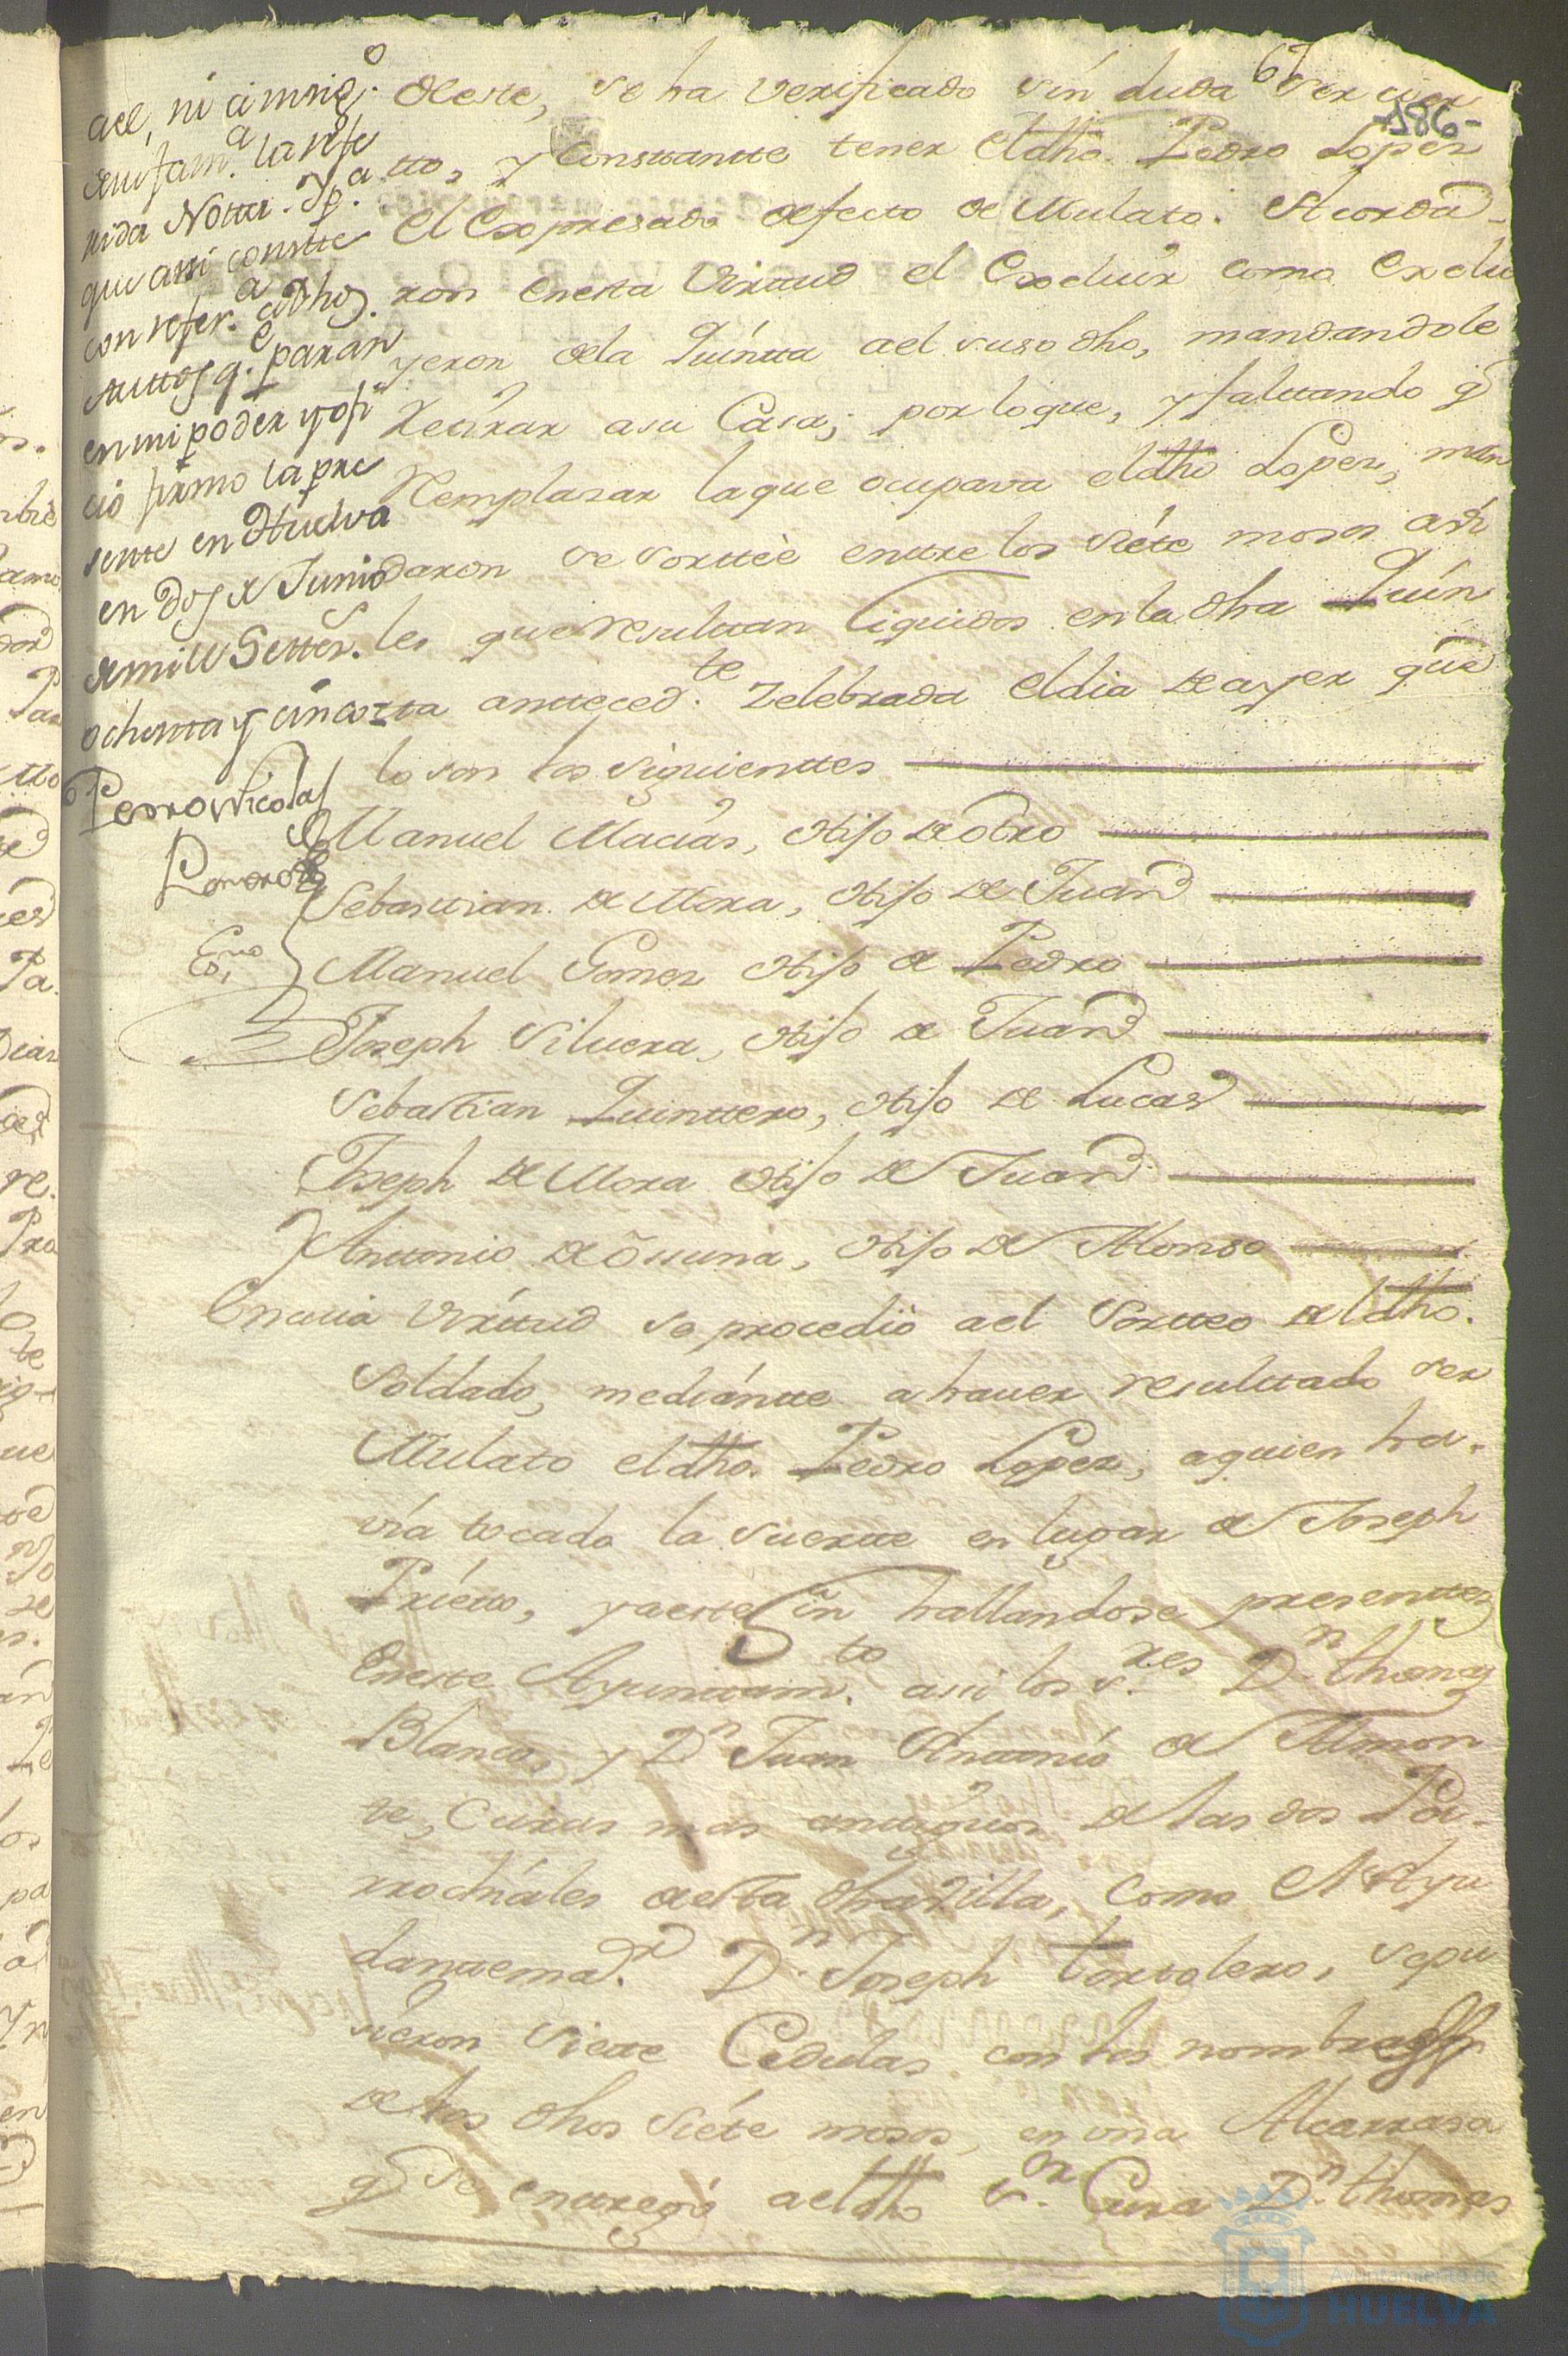 67
-186-
ael, ni a ninig.º
desu fam.ª la refe
rida Notta. Y p.ª
que assi conste
con refer.ª a dhos.
Auttos q.e paran
en mi poder y ofi
cio firmo la pre
sente en Huelva
en dos de Junio
de mill Setten.s
ochenta y cinco
Pedro Nicolas
Romero
Ess.no
Co,,
deste, se ha verificado sin duda ser cier
tto, y Constantte tener el dho. Pedro Lopez
el Expresado defecto de Mulato. Acorda-
ron en esta Virtud el Excluir como Exclu
yeron dela Quintta ael suso dho, mandandole
Retirar a su Casa; por lo que, y faltando q.e
Remplasar la que ocupava el dho Lopez, man
daron se sorttèe enttre los Siéte mosos âbi
les que resulttan liquidos en la dha Quin
ta anteced.te Zelebrada el dia de ayer que
lo son los siguienttes
Manuel Macias, Hijo de otro
Sebasttian de Mora, Hijo de Juan
Manuel Gomez Hijo de Pedro
Joseph Silvera, Hijo de Juan
Sebastian Quinttero, Hijo de Lucas
Joseph de Mora Hijo de Juan
Y Anttonio de Ossuna, Hijo de Alonso
En cuia Virttud se procediò ael Sortteo del dho.
Soldádo, mediántte a haver resulttado ser
Mulato el dho. Pedro Lopez, a quien ha-
vía tocado la suertte en lugar de Joseph
Priétto, y a este fin hallandose presenttes
En este Ayunttam.to asi los S.res D.n thomas
Blanco, y D.n Juan Anttonio de Almon
te, Curas mas anttiguos de las dos Pa-
rrochiáles de esta dha Villa, como el Ayu
dantte ma.r D.n Joseph tortolero, se pu
siéron Siete Cedulas con los nombres
de los dhos Siéte mosos, en una Alcarrasa
q.e se enttregó ael dho S.or Cura D.n thomas
Ayuntamiento de
HUELVA